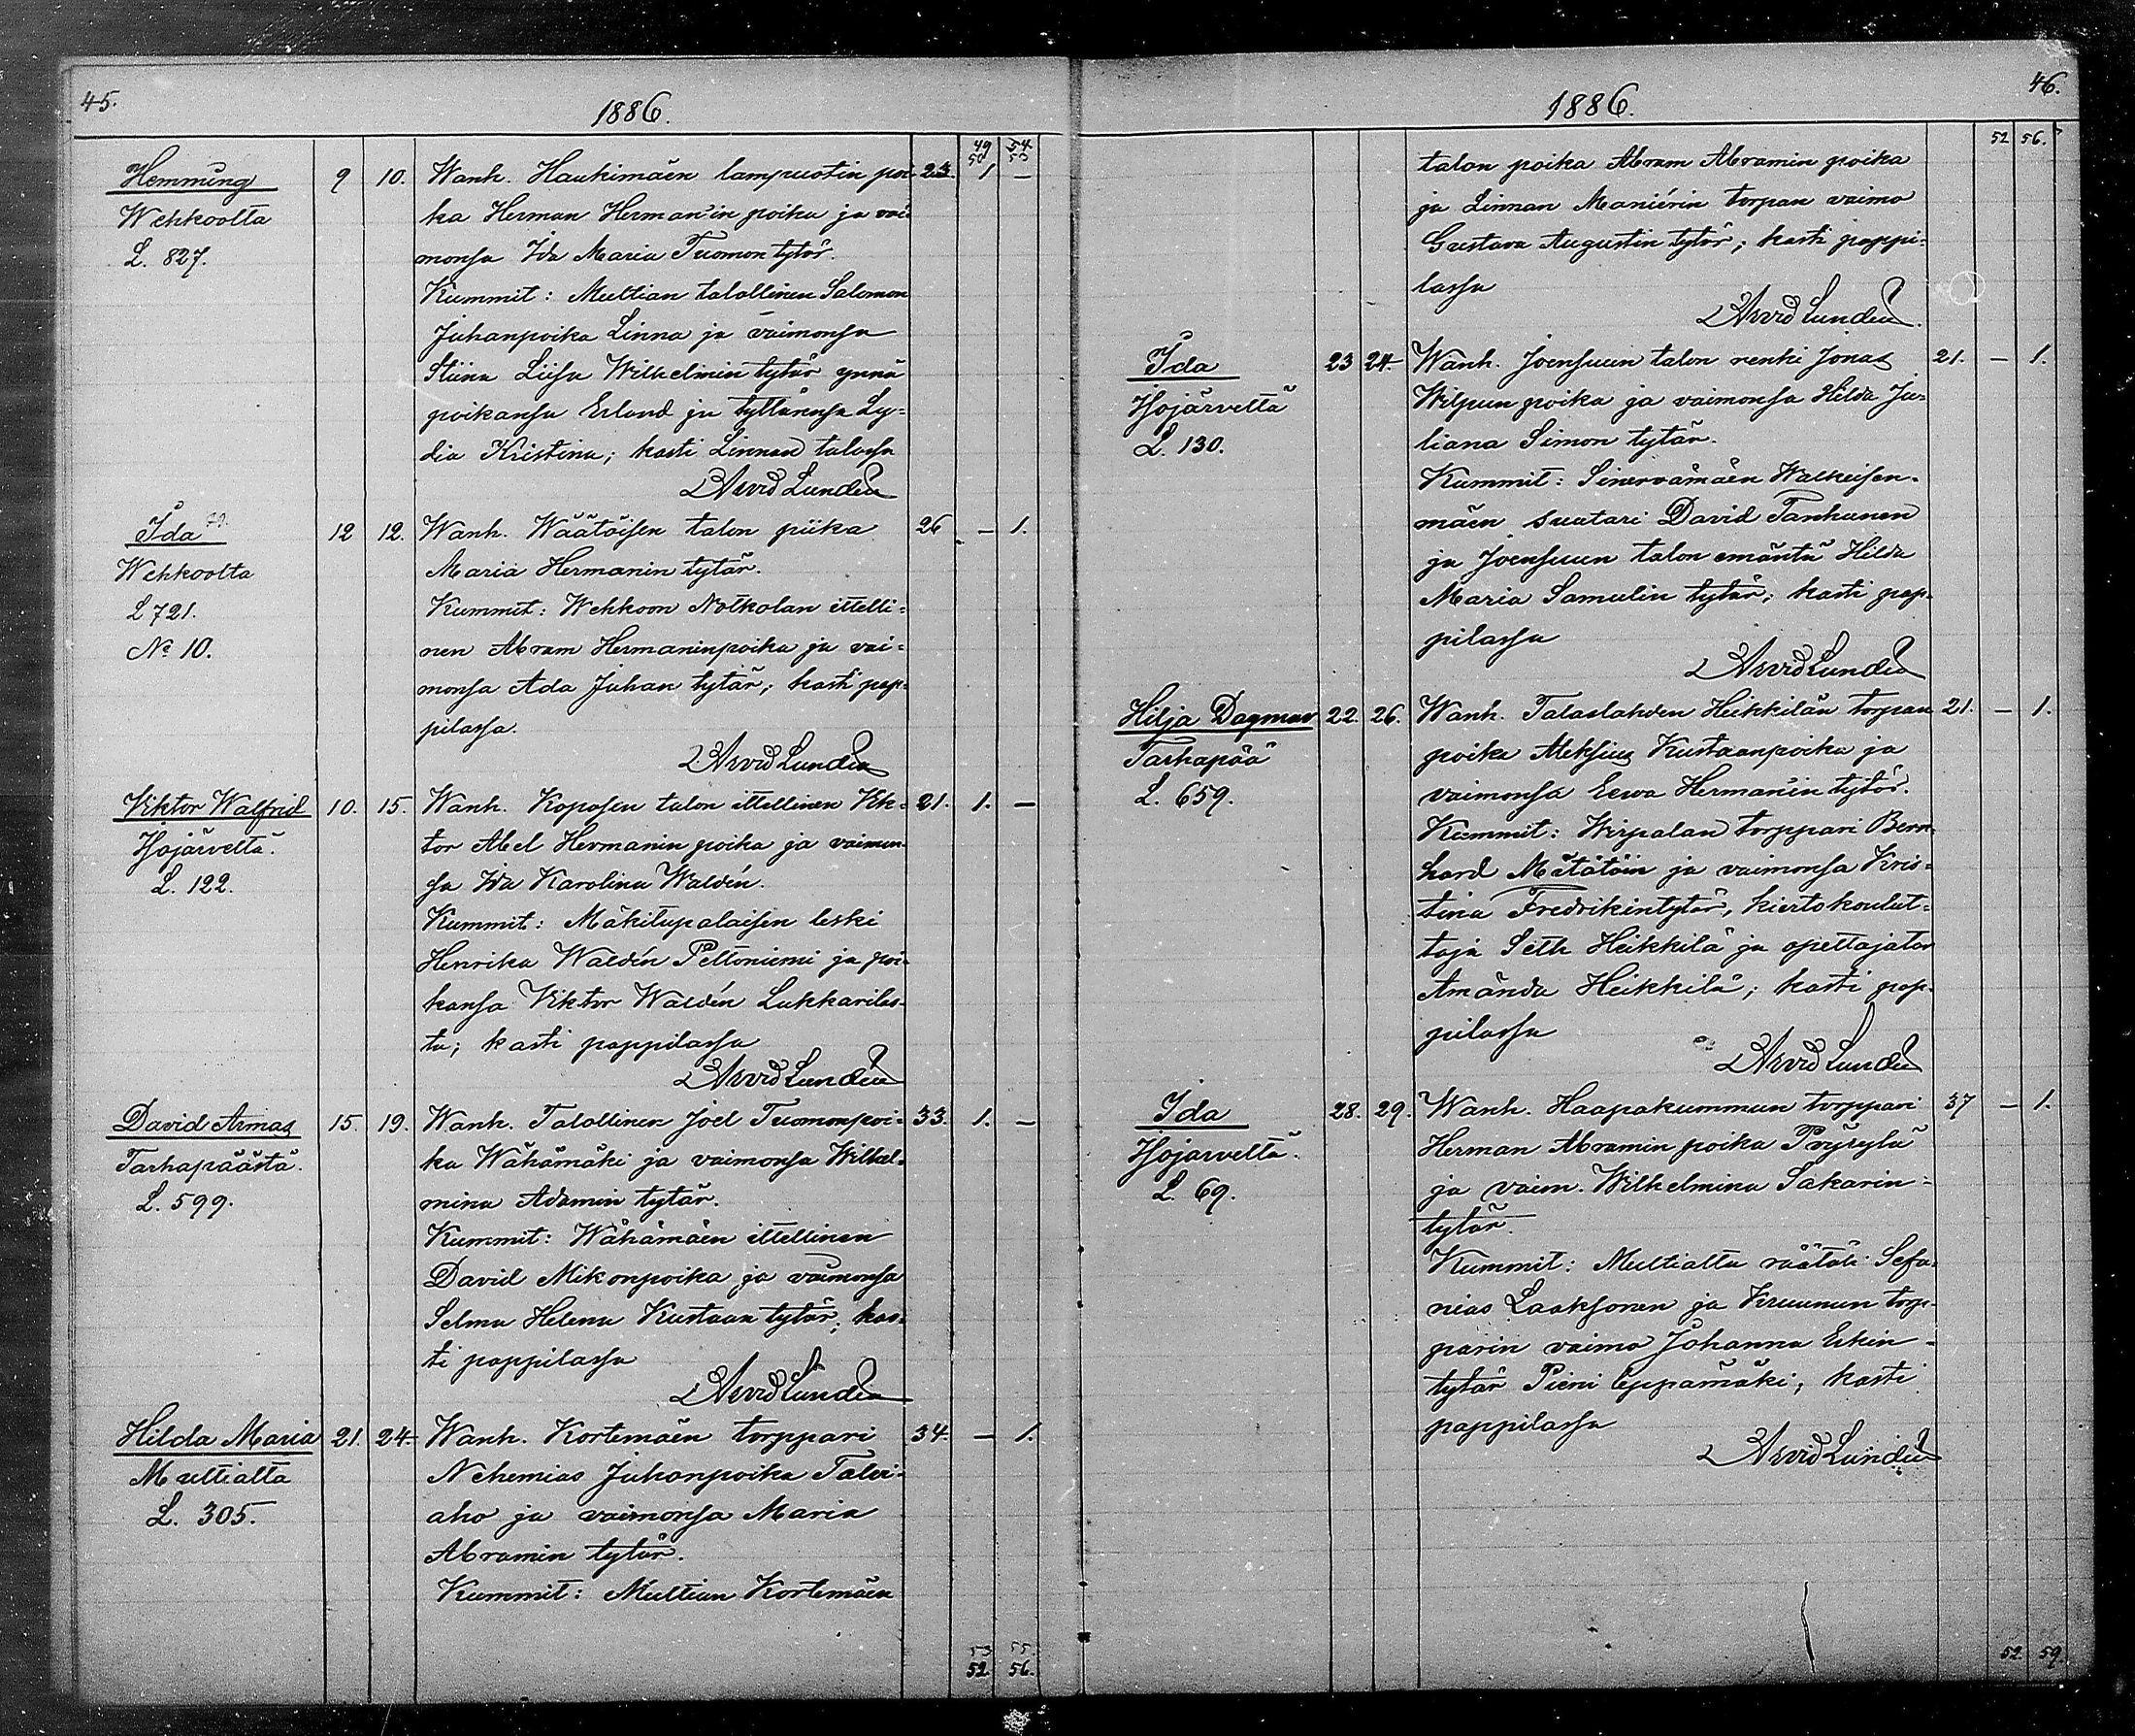 45.
1886.
49 54
50 53
Hemming 9 10. Wanh. Haukimäen lampuotin poi- 23. 1 —
Wehkoolta ka Herman Herman'in poika ja vai-
L. 827. monsa Ida Maria Tuomon tytär.
Kummit: Multian talollinen Salomon
Juhanpoika Linna ja vaimonsa
Stiina Liisa Wilhelmin tytär ynnä
poikansa Erland ja tyttärensä Ly-
dia Kristina; kasti Linnan talossa
Arvid Lundén
Ida 12 12. Wanh. Wäätäisen talon piika 26 — 1.
Wehkoolta Maria Hermanin tytär.
L 721. Kummit: Wehkoon Notkolan itelli-
No 10. nen Abram Hermaninpoika ja vai-
monsa Ada Juhan tytär; kasti pap-
pilassa.
Arvid Lundén
Viktor Walfrid 10. 15. Wanh. Koposen talon itellinen Vik- 21. 1. —
Isojärveltä. tor Abel Hermanin poika ja vaimon-
L. 122. sa Ida Karolina Waldén.
Kummit: Mäkitupalaisen leski
Henrika Waldén Peltoniemi ja poi-
kansa Viktor Waldén Lukkarilas-
ta; kasti pappilassa
Arvid Lundén
David Armas 15. 19. Wanh. Talollinen Joel Tuomonpoi- 33. 1. —
Tarhapäästä. ka Wähämäki ja vaimonsa Wilhel-
L. 599. mina Adamin tytär.
Kummit: Wähämäen itellinen
David Mikonpoika ja vaimonsa
Selma Helena Kustaan tytär; kas-
ti pappilassa
Arvid Lundén
Hilda Maria 21. 24. Wanh. Kortemäen torppari 34. — 1.
Multialta Nehemias Juhanpoika Talvi-
L. 305. aho ja vaimonsa Maria
Abramin tytär.
Kummit: Multian Kortemäen
53 55.
52. 56.
46.
1886.
52 56.
talon poika Abram Abramin poika
ja Linnan Maniérin torpan vaimo
Gustava Augustin tytär; kasti pappi-
lassa
Arvid Lundén.
Ida 23 24. Wanh. Joensuun talon renki Jonas 21. — 1.
Isojärveltä Wilpun poika ja vaimonsa Hilda Ju-
L. 130. liana Simon tytär.
Kummit: Sinervämäen Walkeisen-
mäen suutari David Tanhunen
ja Joensuun talon emäntä Hilda
Maria Samulin tytär; kasti pap-
pilassa
Arvid Lundén
Hilja Dagmar 22. 26. Wanh. Talaslahden Heikkilän torpan 21. — 1.
Tarhapää poika Aleksius Kustaanpoika ja
L. 659. vaimonsa Eewa Hermanin tytär.
Kummit: Wirpalan torppari Bern-
hard Mätätöin ja vaimonsa Kris-
tina Fredrikintytär, kiertokoulut-
taja Seth Heikkilä ja opettajatar
Amanda Heikkilä; kasti pap-
pilassa
Arvid Lundén
Ida 28. 29. Wanh. Haapakummun torppari 37 — 1.
Isojarveltä. Herman Abramin poika
L. 69. ja vaim. Wilhelmina Sakarin-
tytär.
Kummit: Multialta räätäli Sefa-
nias Laaksonen ja Kruunun torp-
parin vaimo Johanna Erkin-
tytär Pieni Leppämäki; kasti
pappilassa
Arvid Lundén
52 59.